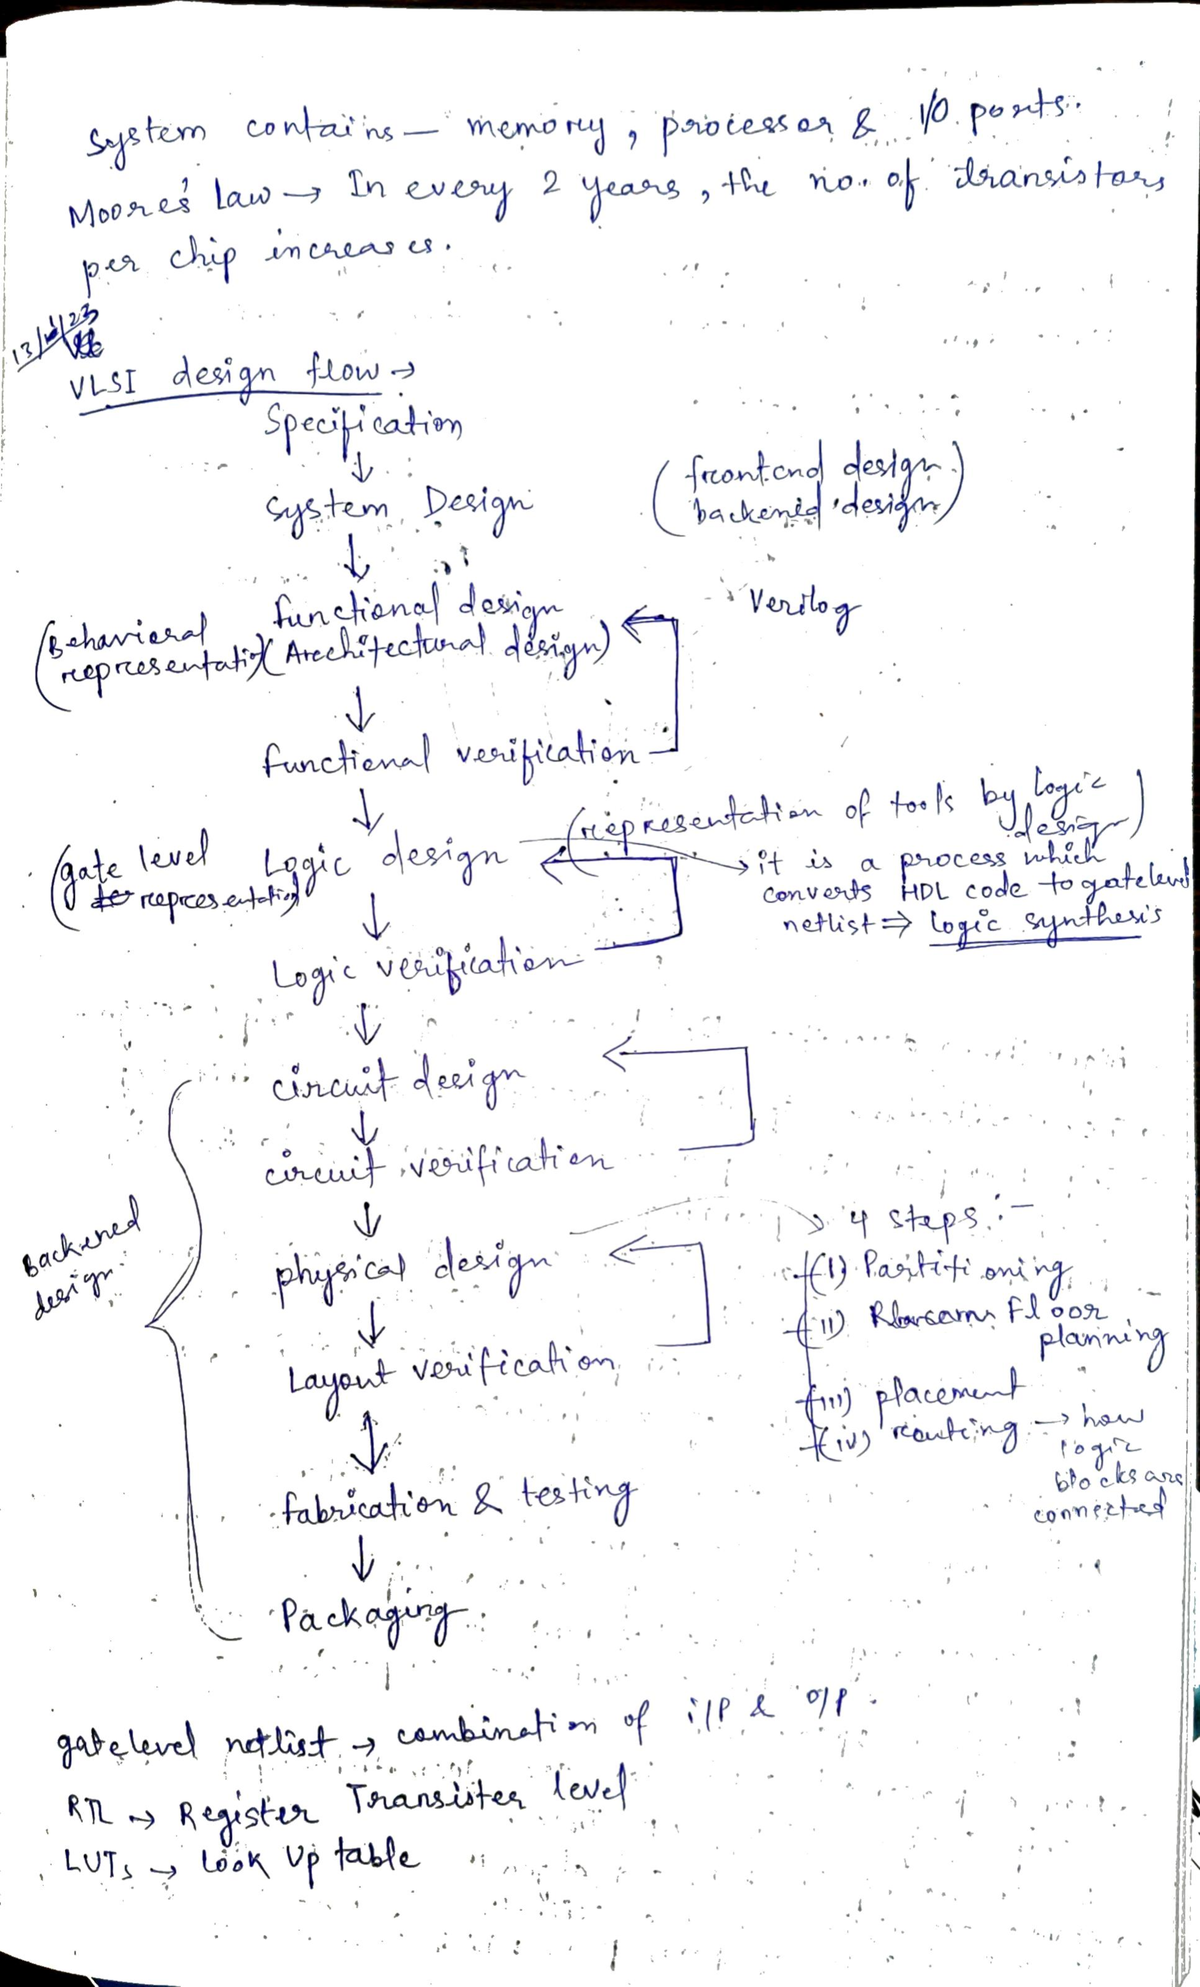 System contains — memory, processor & I/O ports.
Moore's Law → In every 2 years, the no. of transistors
per chip increases.
VLSI design flow →
Specification
↓
System Design
(frontend design
backened design)
↓
functional design
(Behavioral
representatio) (Architectural design)
Verilog
↓
functional verification
↓
(representation of tools by logic
design)
(gate level
representation)
Logic design
→ it is a process which
converts HDL code to gatelevel
netlist ⇒ logic synthesis
↓
Logic verification
↓
circuit design
↓
circuit verification
↓
Backened
design
physical design
→ 4 steps :-
(i) Partitioning
(ii) Floor
planning
(iii) placement
(iv) routing → how
logic
blocks are
connected
↓
Layout verification
↓
fabrication & testing
↓
Packaging
gatelevel netlist → combination of i/p & o/p.
RTL → Register Transister level
LUTs → Look Up table